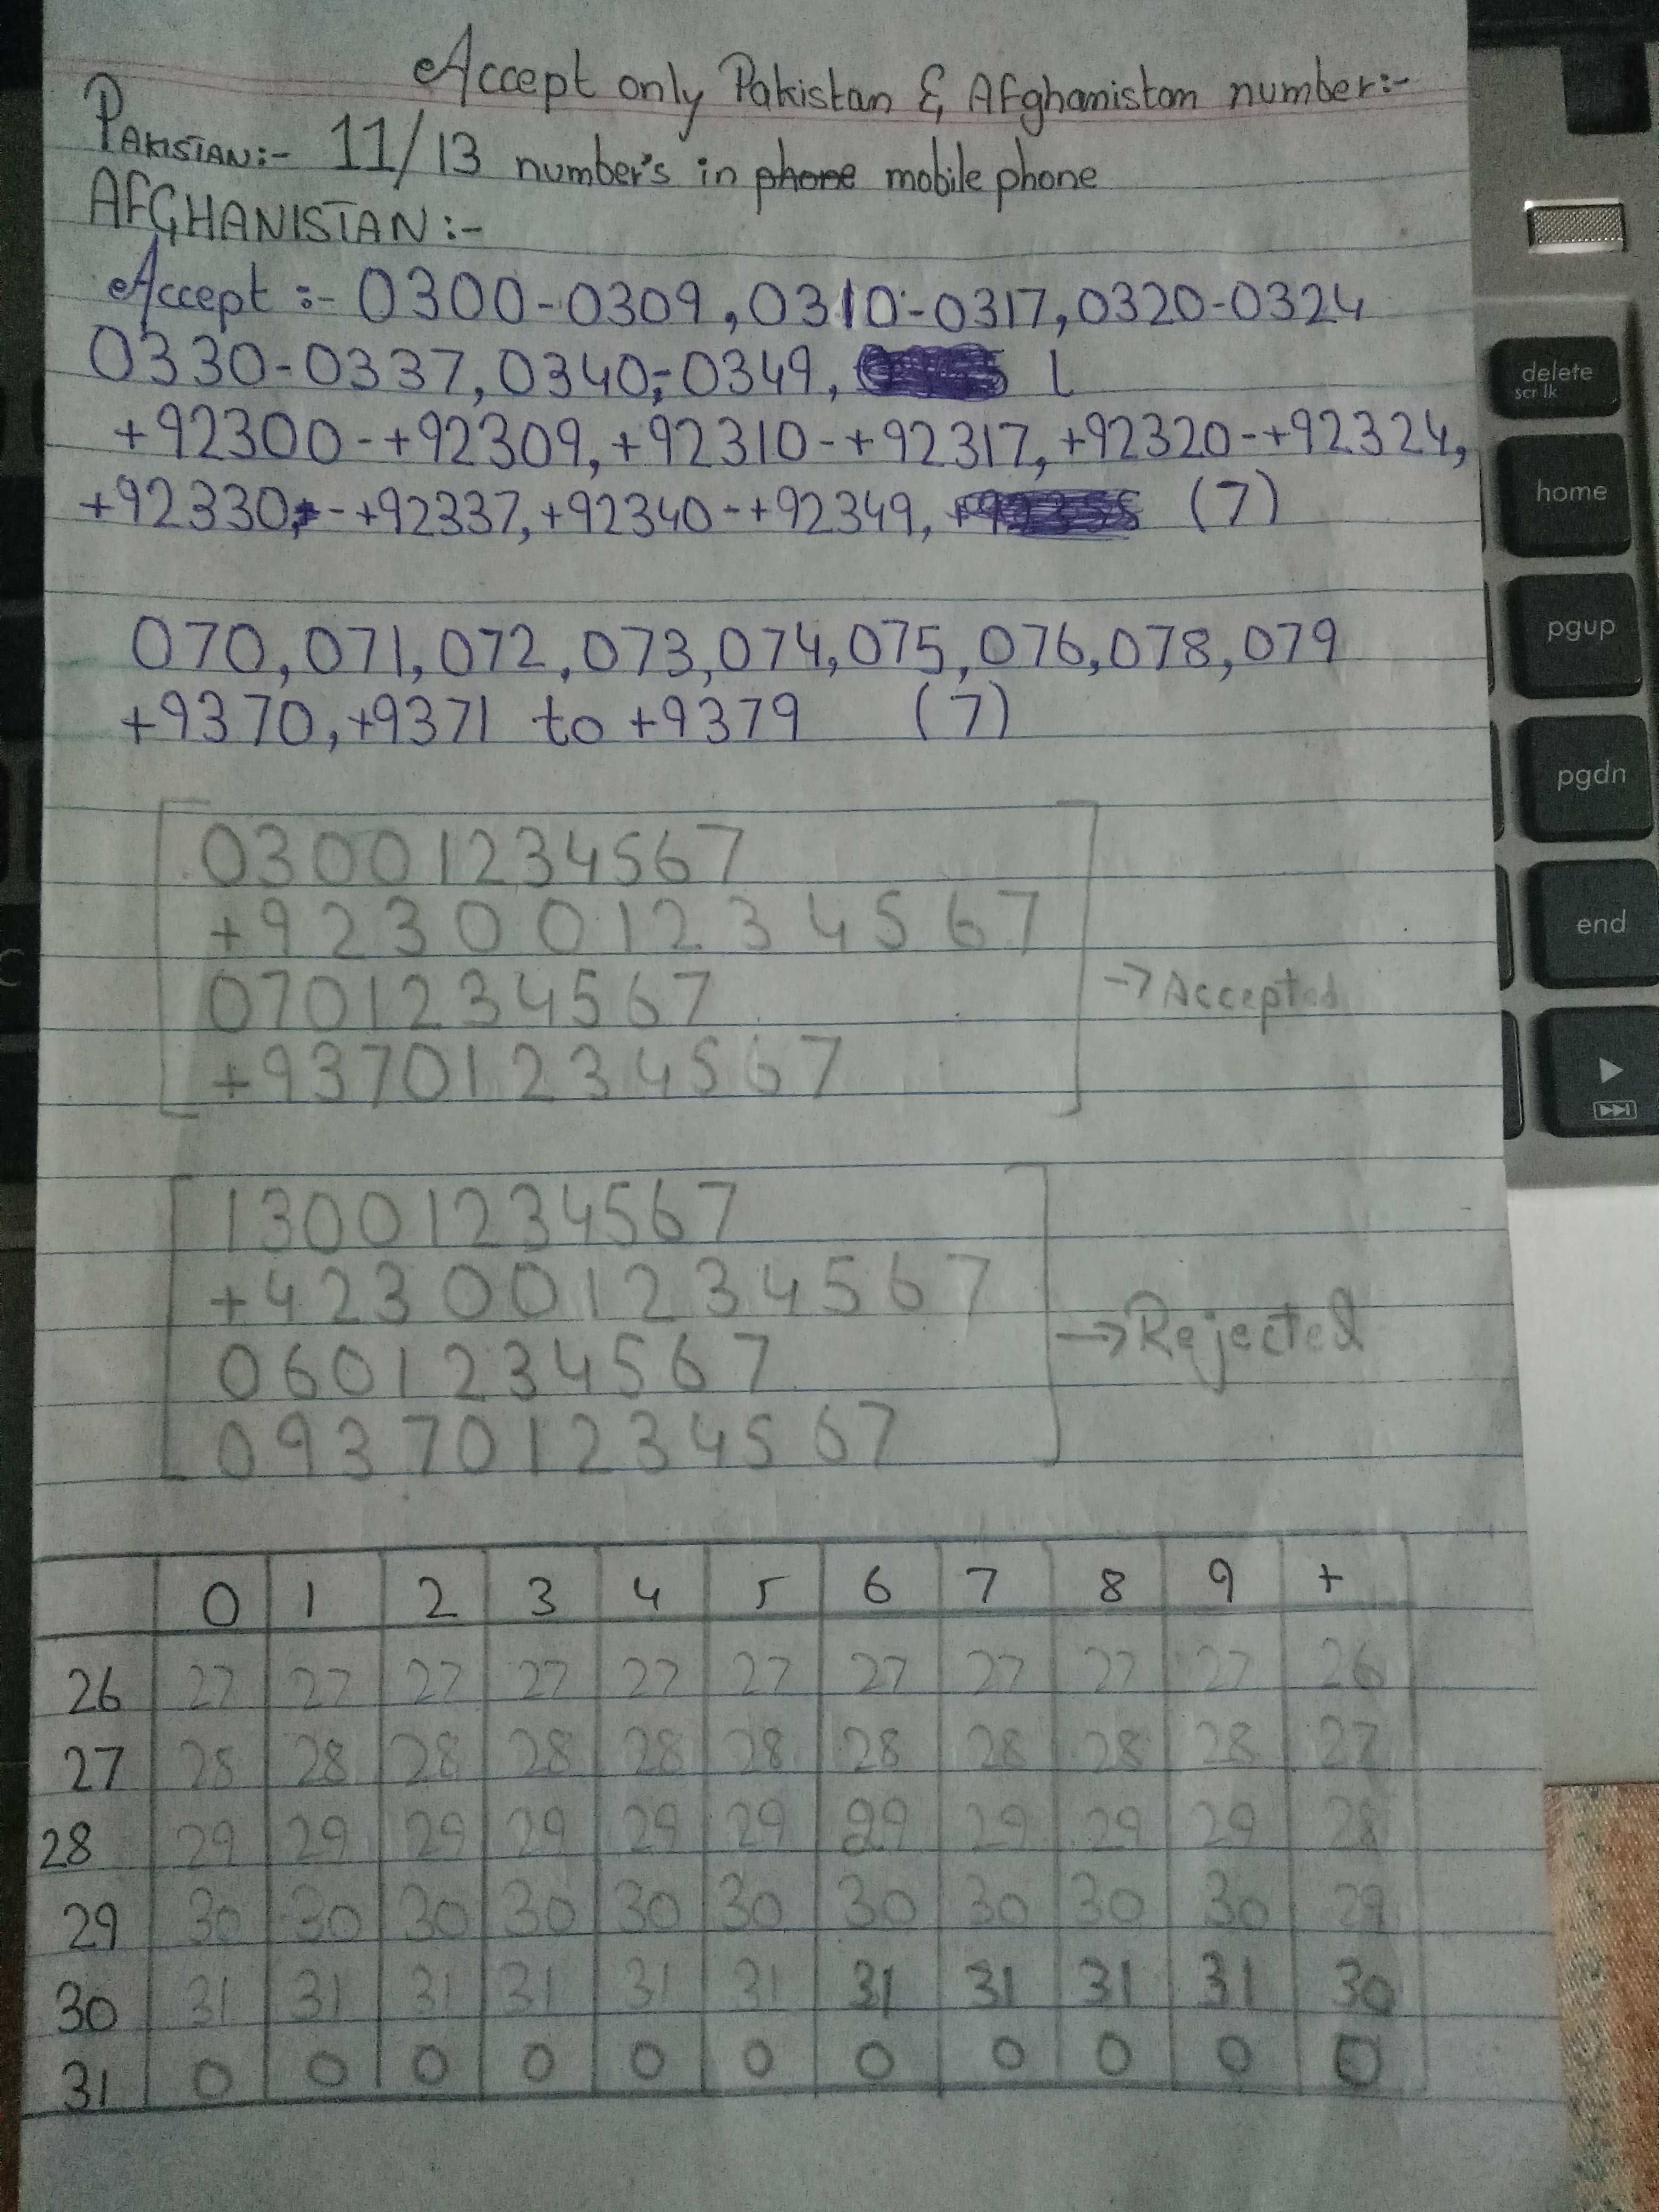 Accept only Pakistan & Afghanistan number:-
PAKISTAN:- 11/13 number's in phone mobile phone
AFGHANISTAN:-
Accept :- 0300-0309, 0310-0317, 0320-0324
0330-0337, 0340-0349,
+92300-+92309, +92310-+92317, +92320-+92324,
+92330-+92337, +92340-+92349, (7)
070, 071, 072, 073, 074, 075, 076, 078, 079
+9370, +9371 to +9379 (7)
03001234567
+923001234567
0701234567
+93701234567
→ Accepted
13001234567
+423001234567
0601234567
093701234567
→ Rejected
0 1 2 3 4 5 6 7 8 9 +
26 27 27 27 27 27 27 27 27 27 27 26
27 28 28 28 28 28 28 28 28 28 28 27
28 29 29 29 29 29 29 29 29 29 29 28
29 30 30 30 30 30 30 30 30 30 30 29
30 31 31 31 31 31 31 31 31 31 31 30
31 0 0 0 0 0 0 0 0 0 0 0
delete
scr lk
home
pgup
pgdn
end